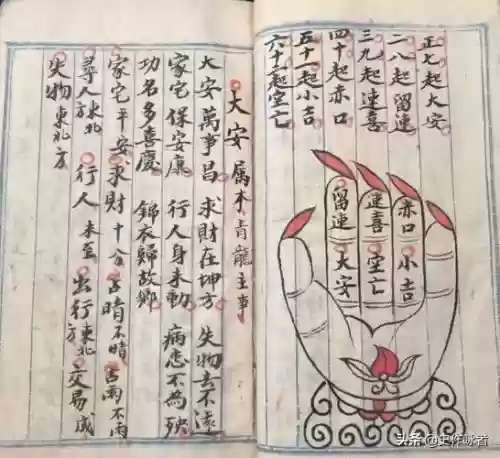 正七起大安
二八起留連
三九起速喜
四十起赤口
五十一起小吉
六十二起空亡
赤口 速喜 留連
小吉 空亡 大安
大安 屬木 青龍主事
大安萬事昌 求財在坤方 失物去不遠
家宅保安康 行人身未動 病患不為殃
功名多喜慶 錦衣歸故鄉
家宅平安 求財十分 占晴不晴 占雨不雨
尋人方東北 行人未至 出行方東北 交易成
失物東北方
头条@史作咏者